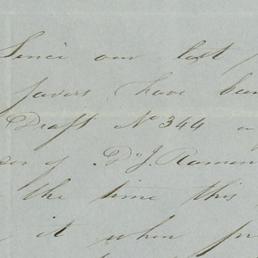 Since our last
favors have been
Draft No 344
of Dn J. Ramon
the time this
it when